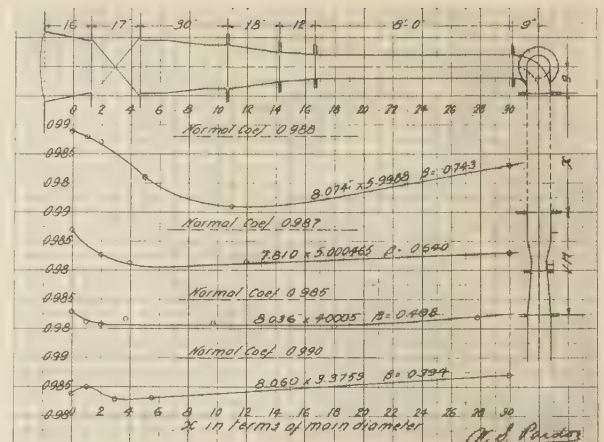 16" 17" 30" 18" 12" 8'-0" 9"
0 2 4 6 8 10 12 14 16 18 20 22 24 26 28 30
0.99
Normal Coef 0.988
0.985
0.98
8.074" x 5.9988 β=0.743
0.99
Normal Coef 0.987
0.985
0.98
7.810 x 5.000465 β=0.640
Normal Coef 0.985
0.985
0.98
8.036 x 4.0005 β=0.498
0.99
Normal Coef 0.990
0.985
8.060 x 3.3759 β=0.394
0.98
0 2 4 6 8 10 12 14 16 18 20 22 24 26 28 30
X in terms of main diameter
X
V.M.